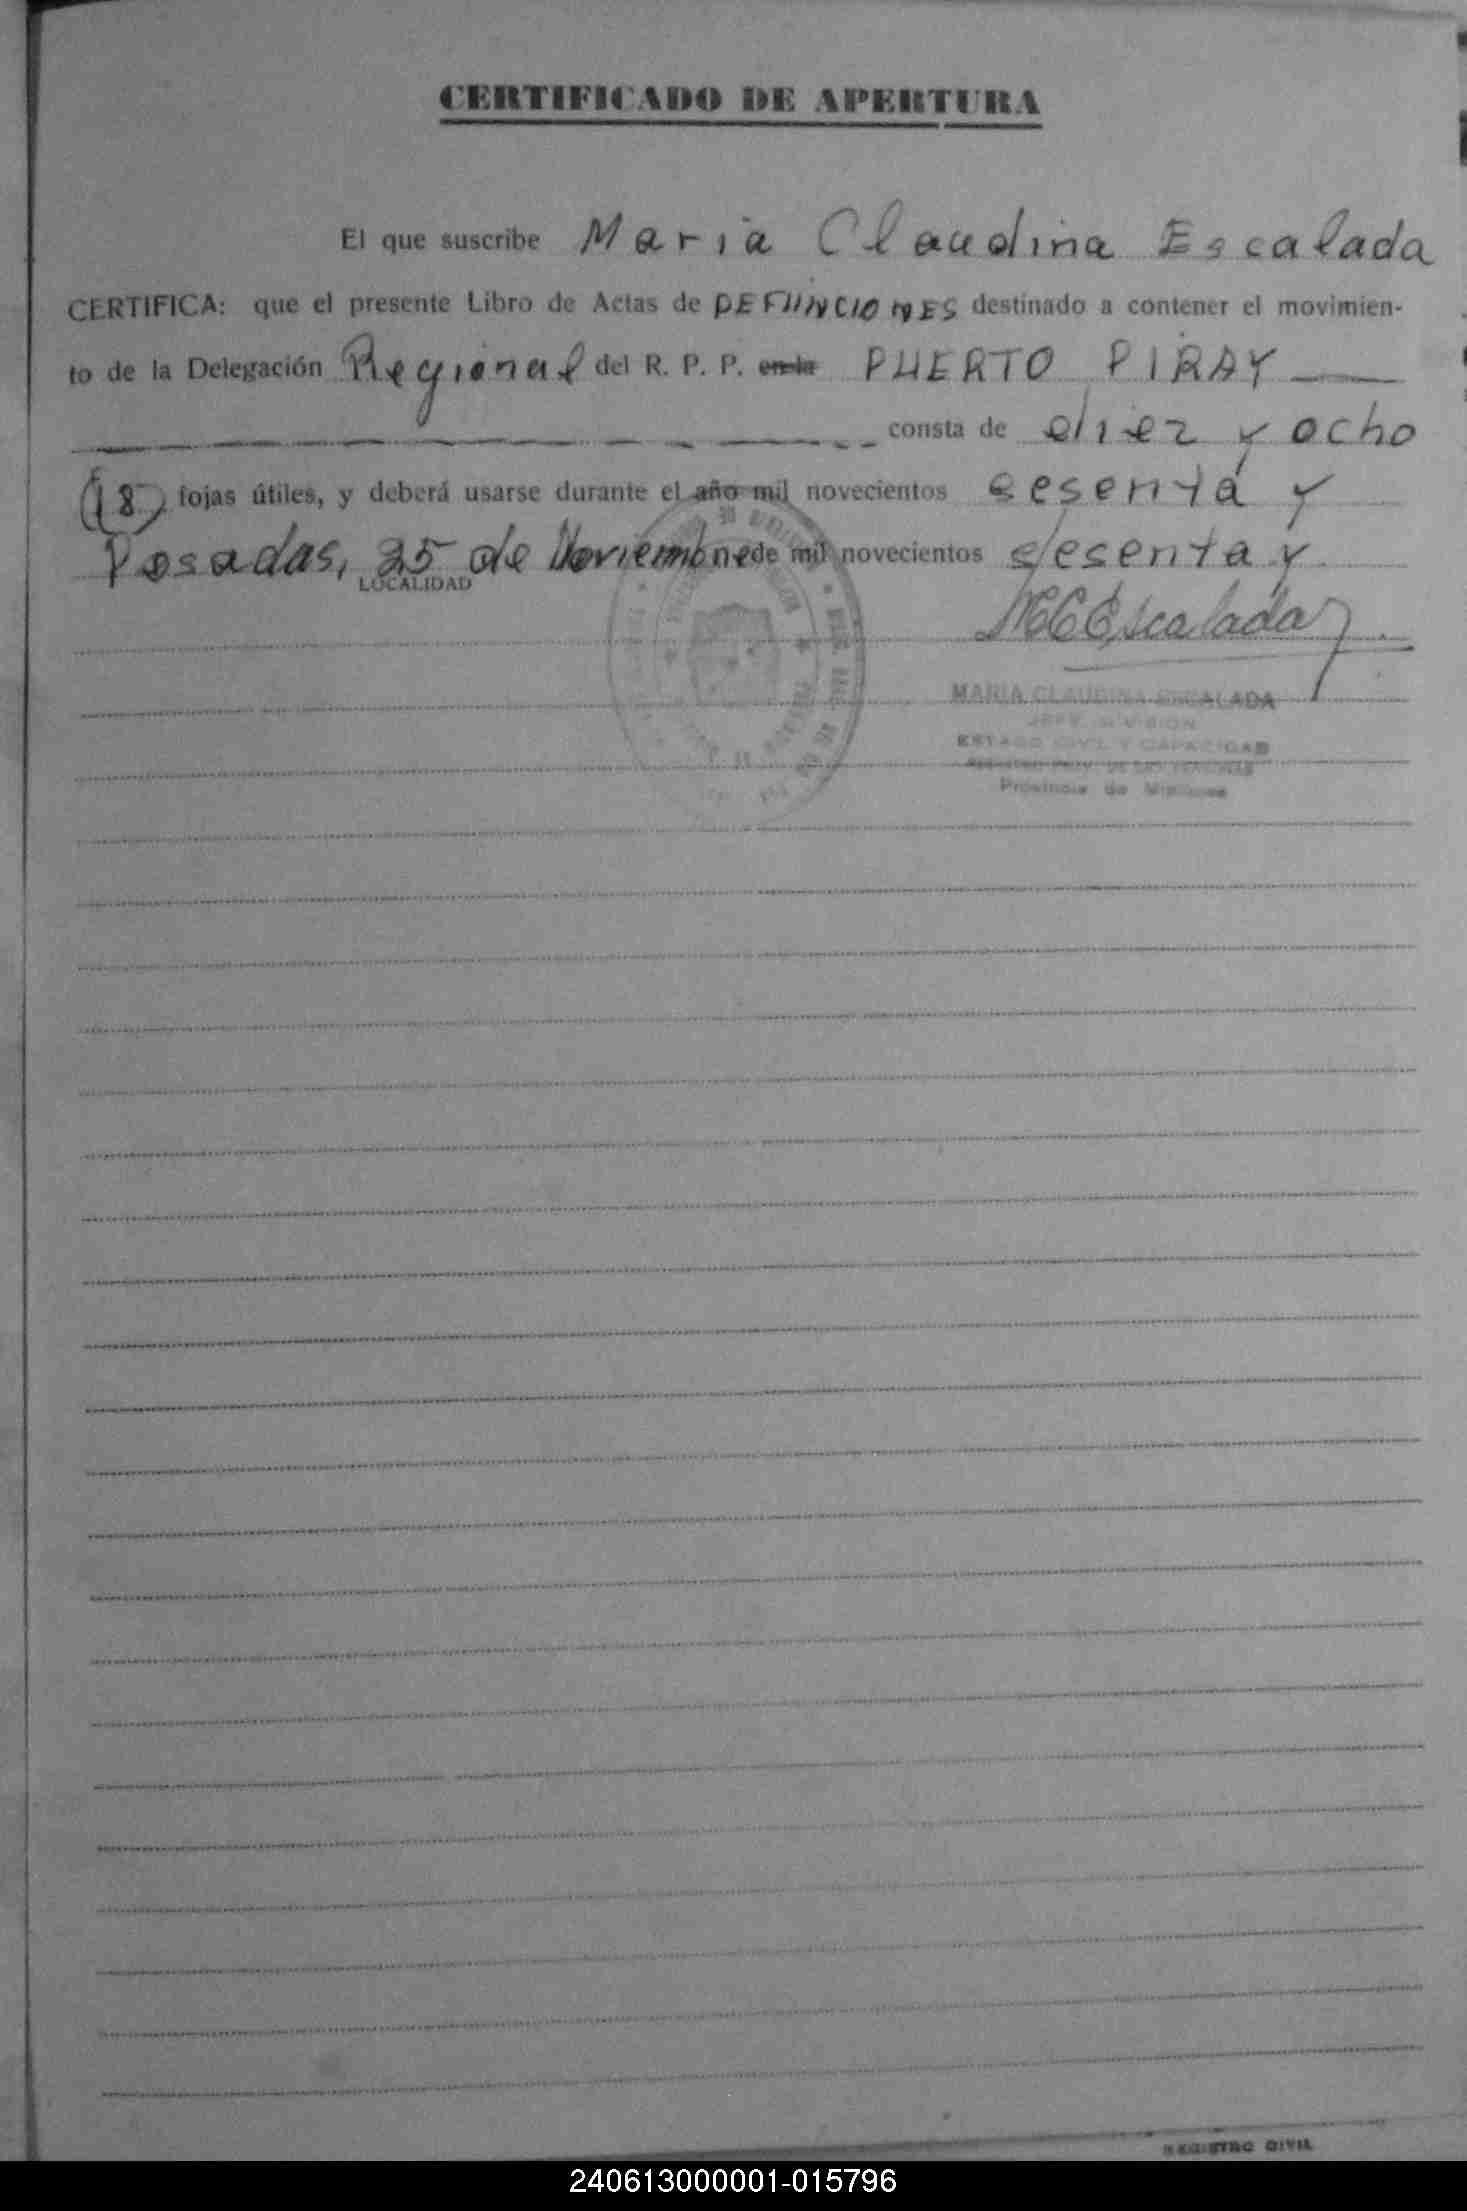 CERTIFICADO DE APERTURA
El que suscribe Maria Claudina Escalada
CERTIFICA: que el presente Libro de Actas de DEFUNCIONES destinado a contener el movimien-
to de la Delegación Regional del R. P. P. en la PUERTO PIRAY
consta de diez y ocho
(18) fojas útiles, y deberá usarse durante el año mil novecientos sesenta y
Posadas, 25 de Noviembre de mil novecientos sesenta y
LOCALIDAD
MCEscalada
MARIA CLAUDINA ESCALADA
JEFE DIVISION
ESTADO CIVIL Y CAPACIDAD
Provincia de Misiones
REGISTRO CIVIL
240613000001-015796